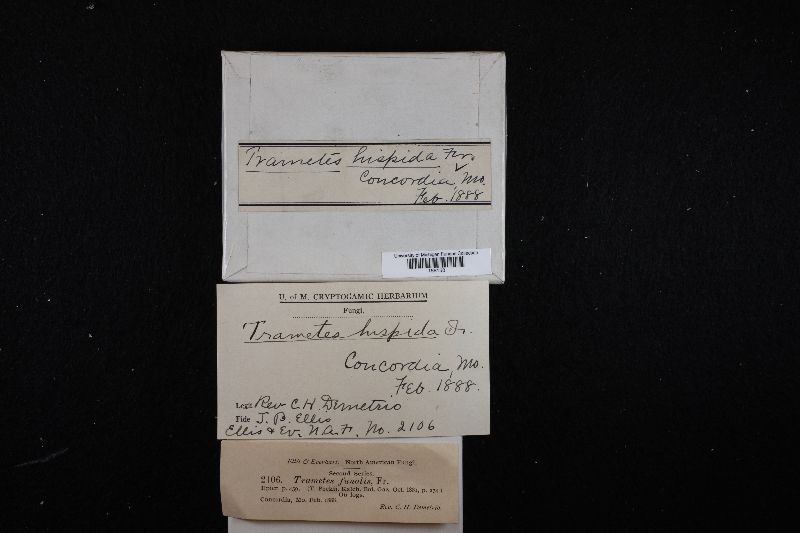 Trametes hispida Fr.
Concordia, Mo.
Feb. 1888
University of Michigan Fungus Collection
U. of M. CRYPTOGAMIC HERBARIUM
Fungi.
Trametes hispida Fr.
Concordia, Mo.
Feb. 1888.
Legit Rev. C. H. Demetrio
Fide J. B. Ellis
Ellis & Ev. N. A. F. No. 2106
Ellis & Everhart, North American Fungi.
Second Series.
2106. Trametes funalis, Fr.
Epicr. p. 490. (T. Peckii, Kalch. Bot. Gaz. Oct. 1881, p. 274.)
On logs.
Concordia, Mo. Feb. 1888.
Rev. C. H. Demetrio.